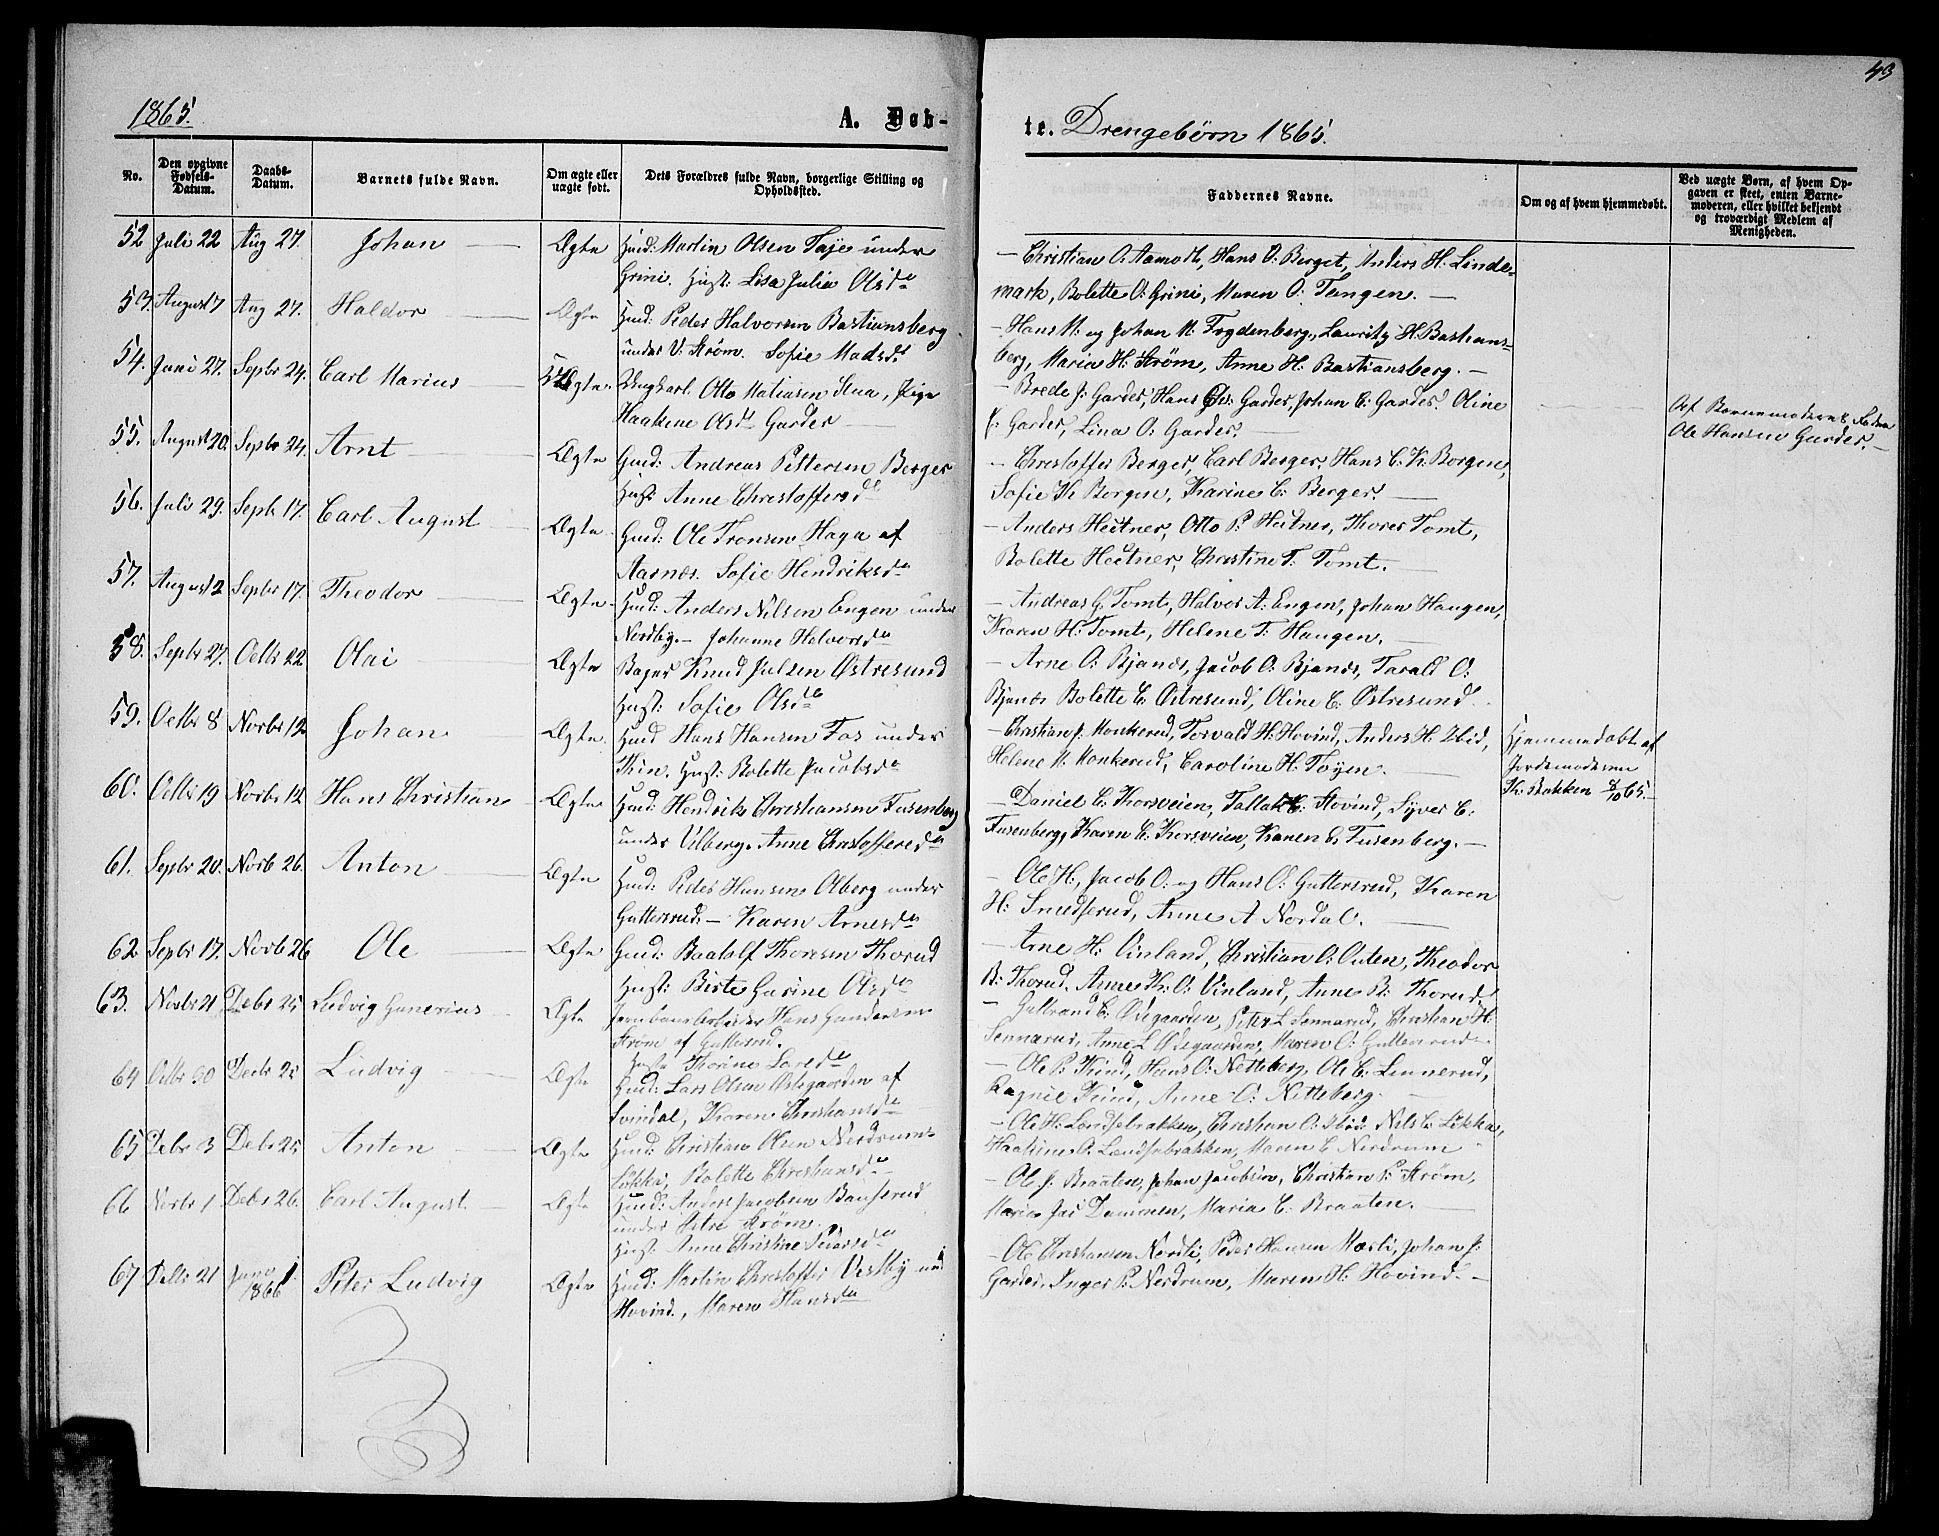 43
1865.
A. Døb-
te. Drengebørn 1865.
No.
Den opgivne Fødsels-Datum.
Daabs-Datum.
Barnets fulde Navn.
Om ægte eller uægte født.
Dets Forældres fulde Navn, borgerlige Stilling og Opholdssted.
Faddernes Navne.
Om og af hvem hjemmedøbt.
Ved uægte Børn, af hvem Op-
gaven er skeet, enten Barne-
moderen, eller hvilket bekjendt
og troværdigt Medlem af
Menigheden.
52 Juli 22 Aug 27. Johan Ægte Huusd: Martin Olsen Taje under
Grini. Hust: Lisa Julia Olsdr
— Christian O: Aamoth, Hans O: Berget, Anders H: Linde-
mark, Bolette O: Grini, Maren O: Tangen. —
53. August 7 Aug 27. Haldor Ægte Huusd: Peder Halvorsen Bastiansberg
under V: Strøm. Sofie Madsdr
— Hans M: og Johan M: Frydenberg, Lauritz H: Bastians-
berg, Maria H: Strøm, Anne H: Bastiansberg. —
54. Juni 27. Septbr 24. Carl Marius Uægte. Ungkarl Otto Matiasen Stua, Pige
Haakene Olsdr Garder
— Brede J: Garder, Hans Ol: Garder, Johan C: Garder. Oline
J: Garder, Lina O: Garder. —
Af Barnemoderens Fader
Ole Hansen Garder. —
55. August 20. Septbr 24. Arnt Ægte Huusd: Andreas Pettersen Berger
Hust: Anne Christoffersdr
— Christoffer Berger, Carl Berger, Hans C. K: Borgen,
Sofie K Borgen, Karine C: Berger. —
56. Juli 29. Septb 17. Carl August Ægte Huusd: Ole Tronsen Haga af
Aarnæs. Sofie Hendriksdr
— Anders Heitner, Otto P: Heitner, Thorer Tomt,
Bolette Heitner, Christine T: Tomt. —
57. August 2 Septbr 17. Theodor Ægte Huusd: Anders Nilsen Engen under
Nordby. — Johanne Halvorsdr
— Andreas G. Tomt, Halvor A: Engen, Johan Haugen,
Karen H: Tomt, Helene T: Haugen. —
58. Septbr 27. Octbr 22 Olai Ægte Bager Knud Juelsen Østresund
Hust: Sofie Olsdr
— Arne O: Bjanes, Jacob O: Bjanes, Tarald O:
Bjanes Bolette C. Østresund, Oline C: Østresund.
59. Octbr 8 Novbr 12 Johan Ægte. Huusd Hans Hansen Fos under
Hust: Bolette Jacobsdr
— Christian J. Monkerud, Torvald H: Hovind, Anders H: Ibid,
Helene M: Monkerud, Caroline H: Toyen. —
Hjemmedøbt af
Jordemoderen
K: Bakken 8/10 65. —
60. Octbr 19 Novbr 12 Hans Christian Ægte Huusd: Hendrik Christiansen Fusenberg
under Ulberg. Anne Christoffersdr
— Daniel C: Korsveien, Tallak C: Hovind, Syver C:
Fusenberg, Karen C. Korsveien, Karen C. Fusenberg. —
61. Septbr 20. Novb 26 Anton Ægte Huusd: Peder Hansen Olberg under
Guttersrud. — Karen Arnesdr
— Ole H:, Jacob O: og Hans O: Guttersrud, Karen
H: Smedserud, Anne A Nordal. —
62 Septbr 17. Novb 26 Ole Ægte Huusd: Baatolf Thoresen Thorud
Hust: Birte Gurine Olsdr
— Arne H: Vinland, Christian O: Outen, Theodor
B: Thorud, Anne K: O: Vinland, Anne B: Thorud.
63. Novbr 21 Debr 25 Ludvig Gunerius Ægte Jernbanearbeider Hans Gundersen
Strøm af Guttersrud.
Hust: Thorine Larsdr
— Gulbrand C. Ødegaarden, Peter L Sennerud, Christian H:
Sennerud, Anne L Ødegaarden, Maren O: Guttersrud
64 Octbr 30 Decbr 25 Ludvig Ægte Huusd: Lars Olsen Østegaarden af
Svindal, Karen Christiansdr
— Ole P. Kind, Hans O: Netteberg, Ole C: Linnerud,
Ragnil Kind, Anne O: Nitteberg.
65 Debr 3 Debr 25 Anton Ægte Huusd: Christian Olsen Nerdrums-
løkke, Bolette Christiansdr
— Ole H: Landsebrakken, Christian O: Ibid. Nils C. Løkka,
Haakine O. Landsebrakken, Maren C Nerdrum
66 Novbr 1 Debr 26. Carl August Ægte Huusd: Anders Jacobsen Bauserud
under Østre Strøm.
Hust: Anne Christine Pedersdr
— Ole J. Braaten, Johan Jacobsen, Christian P: Strøm,
Maria Jac Dammen, Maria C. Braaten. —
67 Debr 21 Janr 1. 1866 Peter Ludvig Ægte Huusd: Martin Christoffer Vestby und
Hovind., Maren Hansdr
— Ole Christiansen Nordli, Peder Hansen Mæsli, Johan J:
Garder, Inger P: Nerdrum, Maren H: Hovind. —